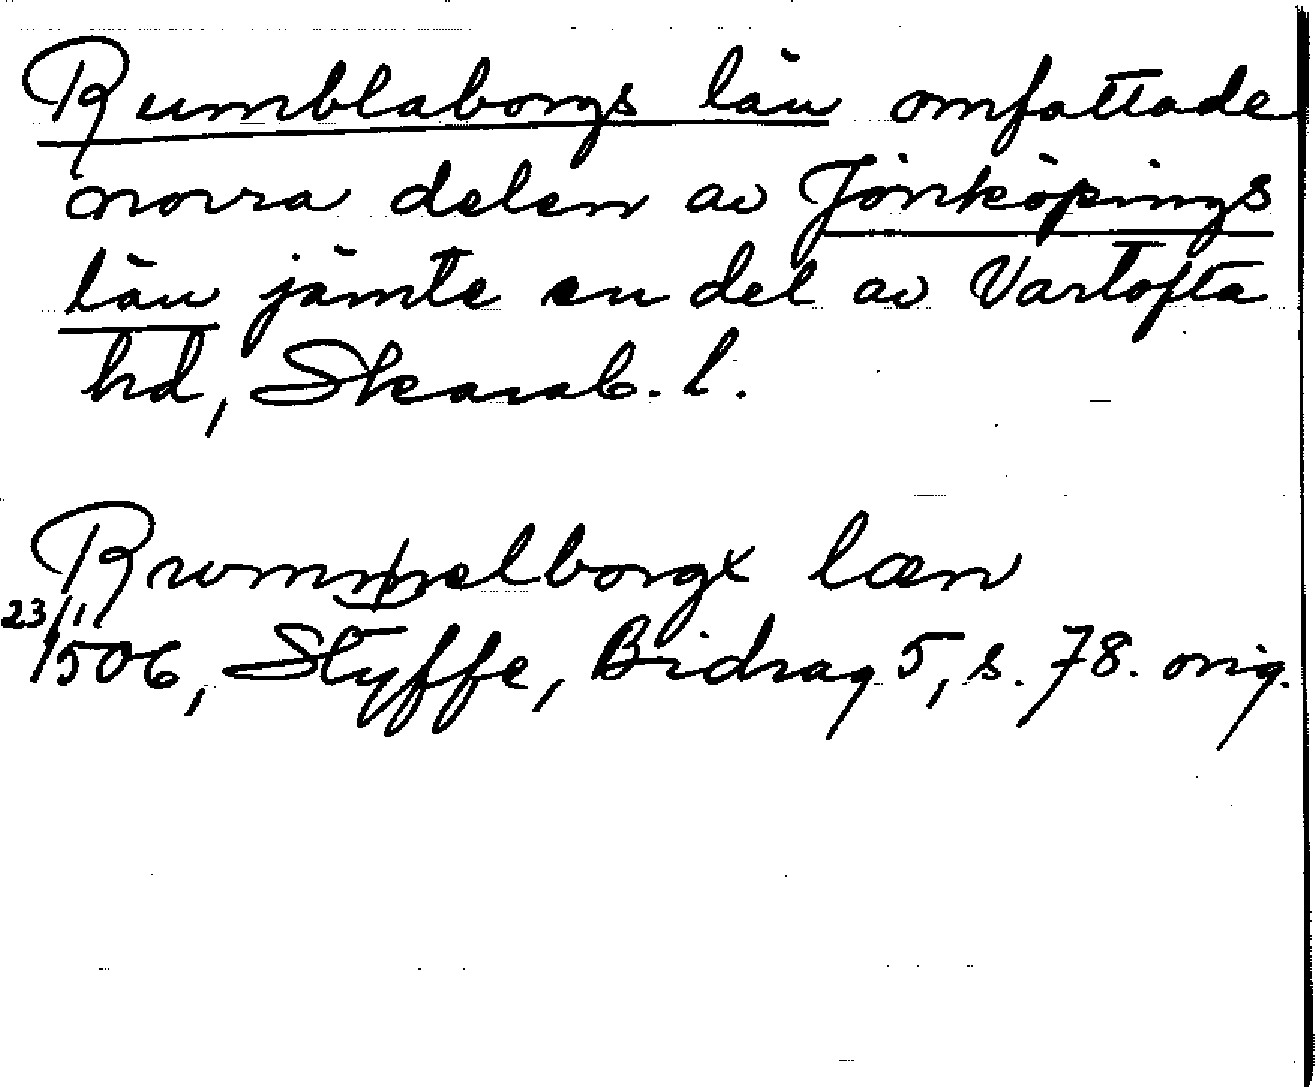 Rumblaborgs län omfattade
norra delen av Jönköpings
län jämte en del av Vartofta
hd, Skarab. l.
Rwmmpelborgx læn
23/11 1506, Styffe, Bidrag 5, s. 78. orig.